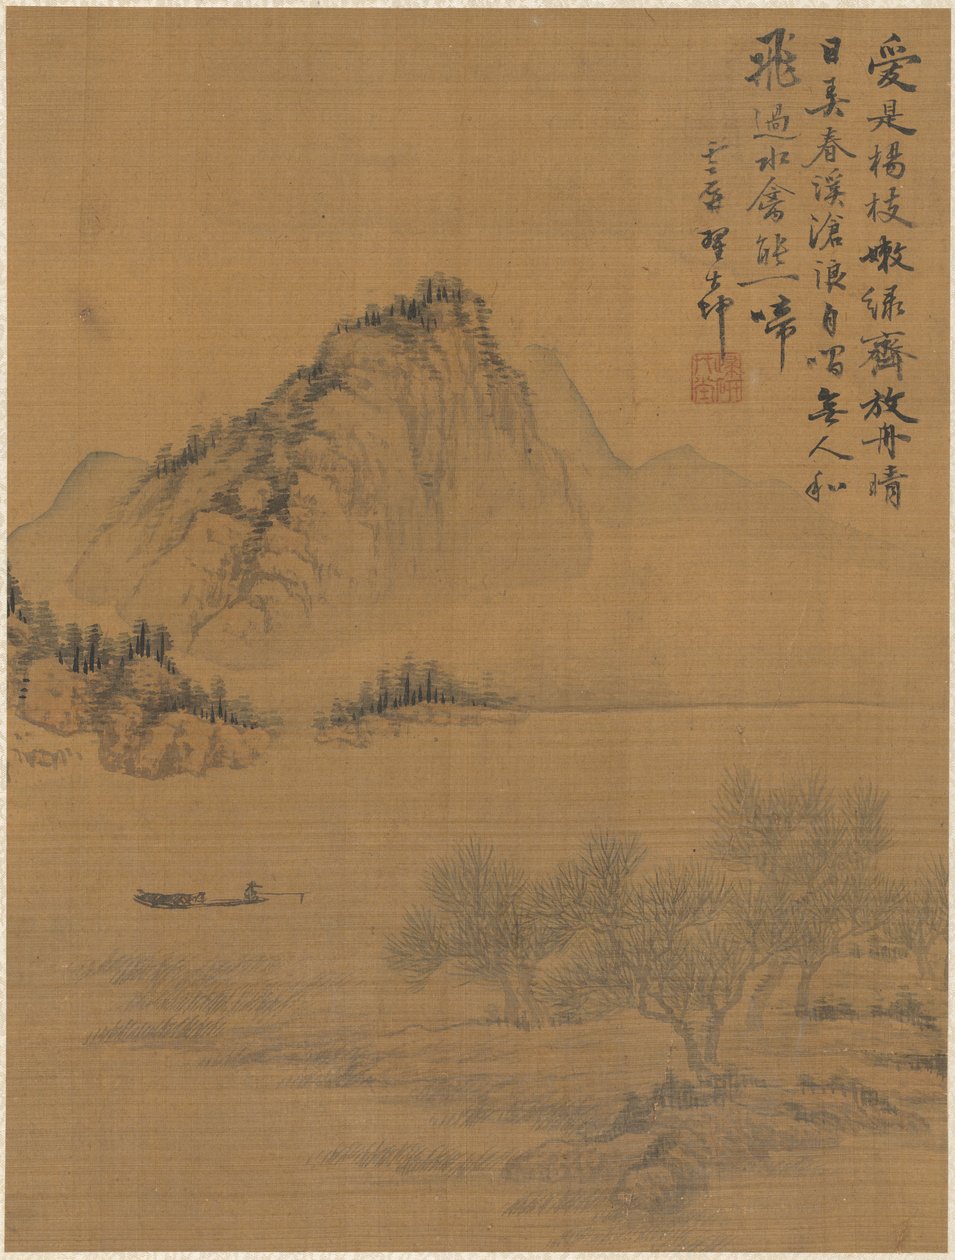 愛是楊枝嫩綠齊放舟晴
日美春溪滄浪自唱無人和
飛過水禽能一啼
雲屏翟大坤